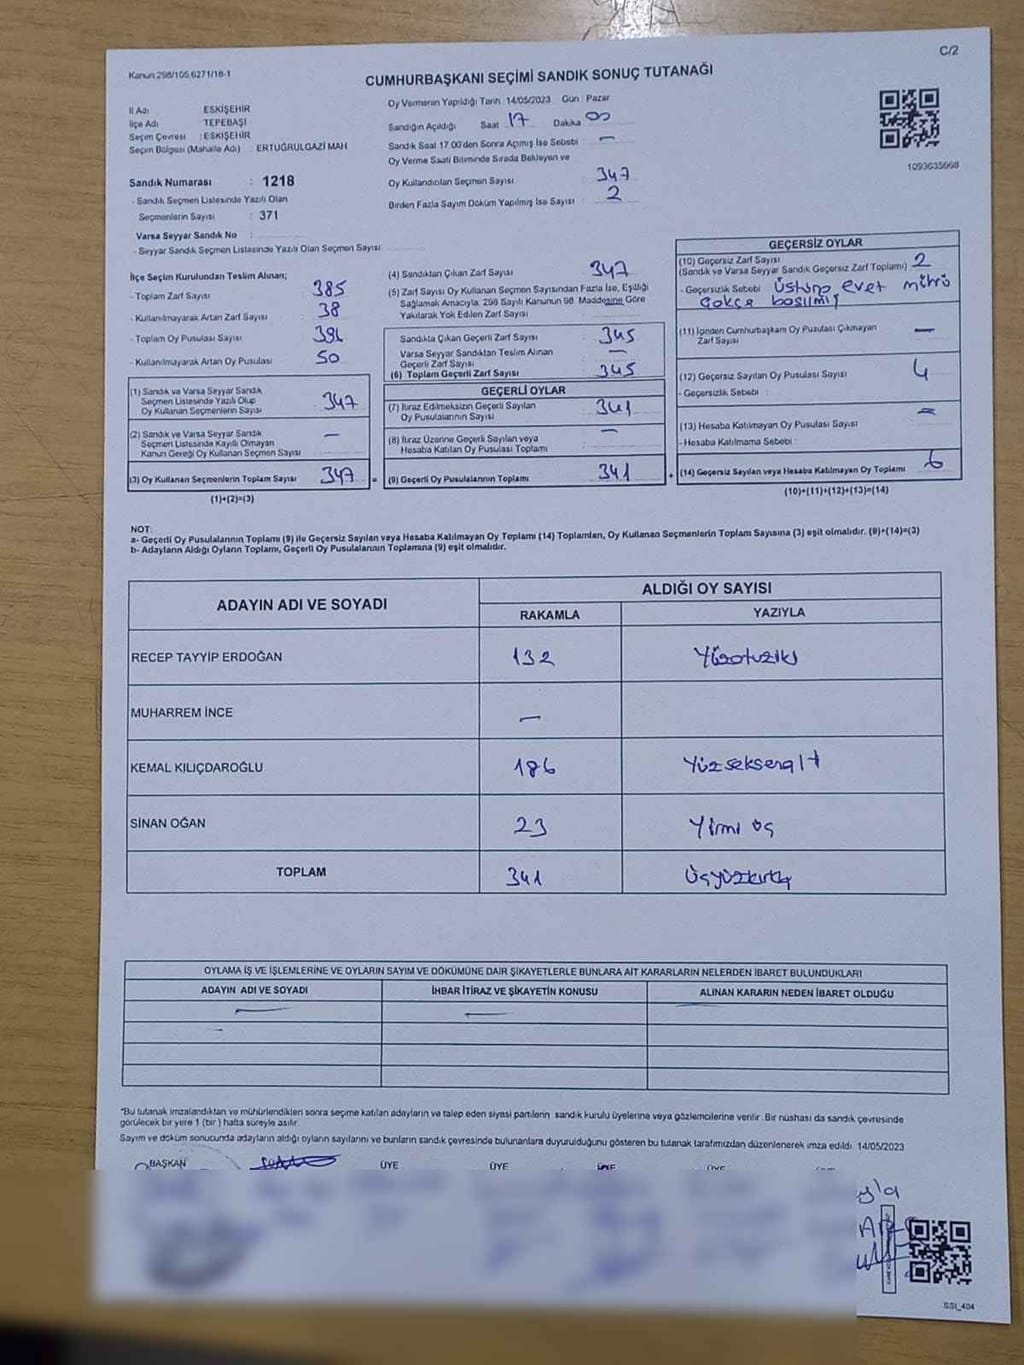 C/2
Kanun 298/105,6271/18-1
CUMHURBAŞKANI SEÇİMİ SANDIK SONUÇ TUTANAĞI
İl Adı ESKİŞEHİR
İlçe Adı TEPEBAŞI
Seçim Çevresi : ESKİŞEHİR
Seçim Bölgesi (Mahalle Adı) : ERTUĞRULGAZİ MAH
Oy Vermenin Yapıldığı Tarih :14/05/2023 Gün : Pazar
Sandığın Açıldığı Saat 17 Dakika 00
Sandık Saat 17.00'den Sonra Açılmış İse Sebebi —
Oy Verme Saati Bitiminde Sırada Bekleyen ve
Oy Kullandırılan Seçmen Sayısı : 347
Birden Fazla Sayım Döküm Yapılmış İse Sayısı : 2
1093635668
Sandık Numarası : 1218
- Sandık Seçmen Listesinde Yazılı Olan
Seçmenlerin Sayısı : 371
Varsa Seyyar Sandık No :
- Seyyar Sandık Seçmen Listesinde Yazılı Olan Seçmen Sayısı :
İlçe Seçim Kurulundan Teslim Alınan;
- Toplam Zarf Sayısı : 385
- Kullanılmayarak Artan Zarf Sayısı : 38
- Toplam Oy Pusulası Sayısı : 391
- Kullanılmayarak Artan Oy Pusulası : 50
(1) Sandık ve Varsa Seyyar Sandık
Seçmen Listesinde Yazılı Olup
Oy Kullanan Seçmenlerin Sayısı : 347
(2) Sandık ve Varsa Seyyar Sandık
Seçmen Listesinde Kayıtlı Olmayan
Kanun Gereği Oy Kullanan Seçmen Sayısı : —
(3) Oy Kullanan Seçmenlerin Toplam Sayısı : 347 =
(1)+(2)=(3)
(4) Sandıktan Çıkan Zarf Sayısı : 347
(5) Zarf Sayısı Oy Kullanan Seçmen Sayısından Fazla İse, Eşitliği
Sağlamak Amacıyla, 298 Sayılı Kanunun 98. Maddesine Göre
Yakılarak Yok Edilen Zarf Sayısı :
Sandıkta Çıkan Geçerli Zarf Sayısı : 345
Varsa Seyyar Sandıktan Teslim Alınan
Geçerli Zarf Sayısı : —
(6) Toplam Geçerli Zarf Sayısı : 345
GEÇERLİ OYLAR
(7) İtiraz Edilmeksizin Geçerli Sayılan
Oy Pusulalarının Sayısı : 341
(8) İtiraz Üzerine Geçerli Sayılan veya
Hesaba Katılan Oy Pusulası Toplamı : —
(9) Geçerli Oy Pusulalarının Toplamı : 341 +
GEÇERSİZ OYLAR
(10) Geçersiz Zarf Sayısı
(Sandık ve Varsa Seyyar Sandık Geçersiz Zarf Toplamı) : 2
- Geçersizlik Sebebi : Üstüne evet mührü
basılmış
(11) İçinden Cumhurbaşkanı Oy Pusulası Çıkmayan
Zarf Sayısı : —
(12) Geçersiz Sayılan Oy Pusulası Sayısı : 4
- Geçersizlik Sebebi :
(13) Hesaba Katılmayan Oy Pusulası Sayısı : —
- Hesaba Katılmama Sebebi :
(14) Geçersiz Sayılan veya Hesaba Katılmayan Oy Toplamı : 6
(10)+(11)+(12)+(13)=(14)
NOT:
a- Geçerli Oy Pusulalarının Toplamı (9) ile Geçersiz Sayılan veya Hesaba Katılmayan Oy Toplamı (14) Toplamları, Oy Kullanan Seçmenlerin Toplam Sayısına (3) eşit olmalıdır. (9)+(14)=(3)
b- Adayların Aldığı Oyların Toplamı, Geçerli Oy Pusulalarının Toplamına (9) eşit olmalıdır.
ADAYIN ADI VE SOYADI
ALDIĞI OY SAYISI
RAKAMLA YAZIYLA
RECEP TAYYİP ERDOĞAN 132 Yüzotuziki
MUHARREM İNCE —
KEMAL KILIÇDAROĞLU 186 Yüzseksenaltı
SİNAN OĞAN 23 Yirmi üç
TOPLAM 341 Üçyüzkırkbir
OYLAMA İŞ VE İŞLEMLERİNE VE OYLARIN SAYIM VE DÖKÜMÜNE DAİR ŞİKAYETLERLE BUNLARA AİT KARARLARIN NELERDEN İBARET BULUNDUKLARI
ADAYIN ADI VE SOYADI İHBAR İTİRAZ VE ŞİKAYETİN KONUSU ALINAN KARARIN NEDEN İBARET OLDUĞU
*Bu tutanak imzalandıktan ve mühürlendikten sonra seçime katılan adayların ve talep eden siyasi partilerin sandık kurulu üyelerine veya gözlemcilerine verilir. Bir nüshası da sandık çevresinde
görülecek bir yere 1 (bir) hafta süreyle asılır.
Sayım ve döküm sonucunda adayların aldığı oyların sayılarını ve bunların sandık çevresinde bulunanlara duyurulduğunu gösteren bu tutanak tarafımızdan düzenlenerek imza edildi. 14/05/2023
BAŞKAN ÜYE ÜYE ÜYE ÜYE
SSI_404